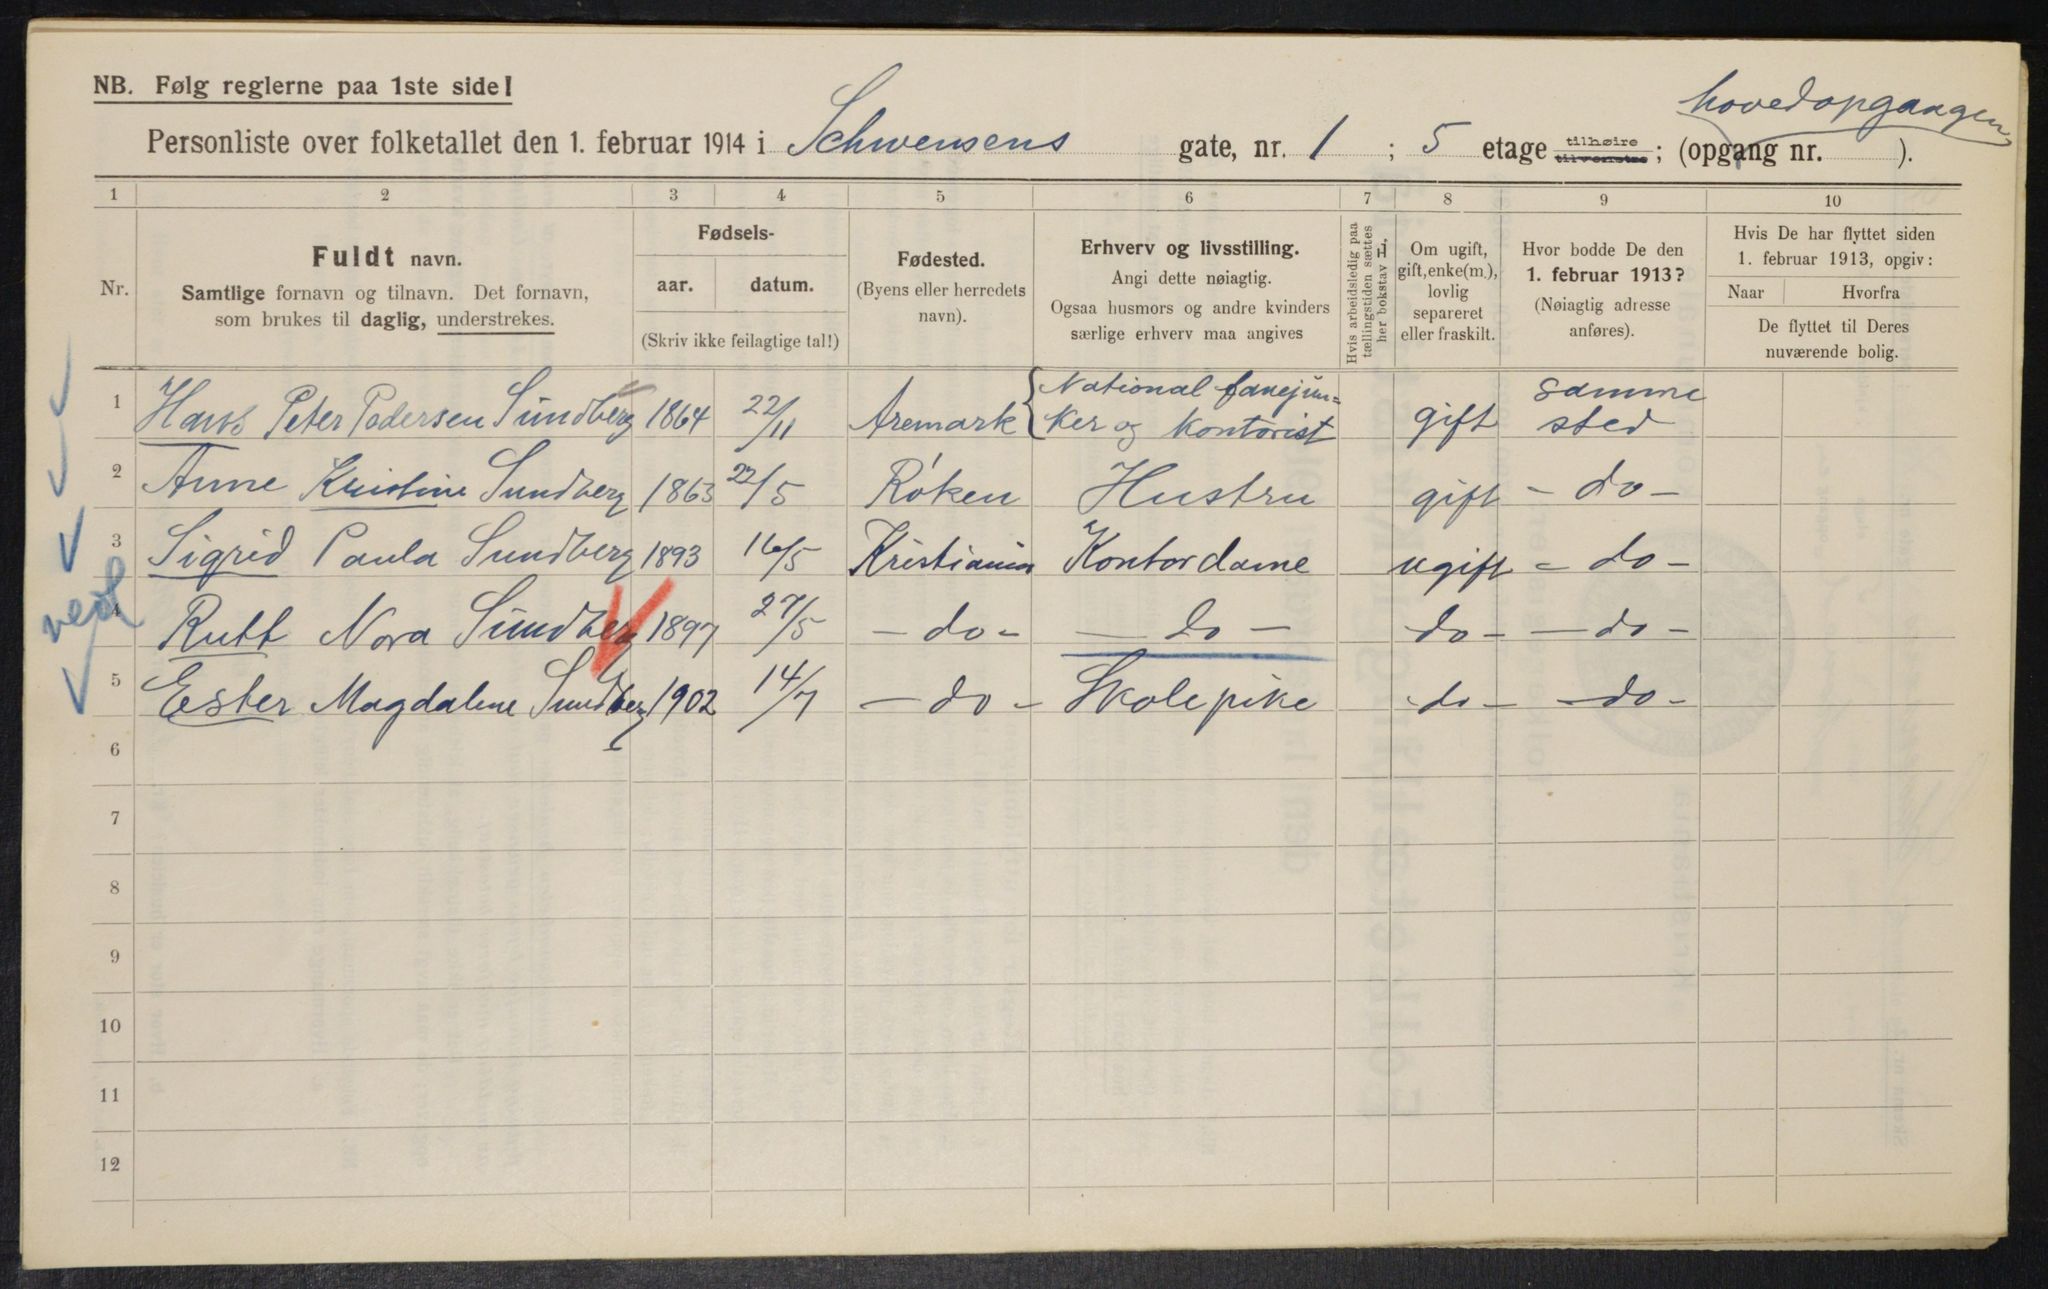 NB. Følg reglerne paa 1ste side!
hovedopgaagen
Personliste over folketallet den 1. februar 1914 i Schwensens gate, nr. 1 ; 5 etage tilhøire tilvenstre ; (opgang nr. ).
1 2 3 4 5 6 7 8 9 10
Nr.
Fuldt navn.
Samtlige fornavn og tilnavn. Det fornavn,
som brukes til daglig, understrekes.
Fødsels-
aar. datum.
(Skriv ikke feilagtige tal!)
Fødested.
(Byens eller herredets
navn).
Erhverv og livsstilling.
Angi dette nøiagtig.
Ogsaa husmors og andre kvinders
særlige erhverv maa angives
Hvis arbeidsledig paa
tællingstiden sættes
her bokstav L.
Om ugift,
gift, enke(m.),
lovlig
separeret
eller fraskilt.
Hvor bodde De den
1. februar 1913?
(Nøiagtig adresse
anføres).
Hvis De har flyttet siden
1. februar 1913, opgiv:
Naar Hvorfra
De flyttet til Deres
nuværende bolig.
1 Hans Peter Pedersen Sundberg 1864 22/11 Aremark National fanejun=
ker og kontorist gift samme
sted
2 Anne Kristine Sundberg 1863 22/5 Røken Hustru gift - do -
3 Sigrid Paula Sundberg 1893 16/5 Kristiania Kontordame ugift - do -
4 Rutt Nora Sundberg 1897 27/5 - do - - do - do - - do -
5 Ester Magdalene Sundberg 1902 14/7 - do - Skolepike do - - do -
6
7
8
9
10
11
12